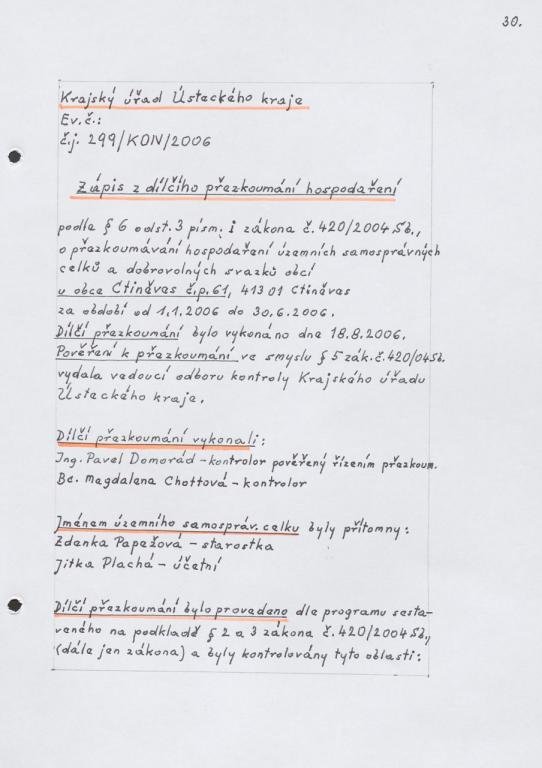 30.
Krajský úřad Ústeckého kraje
Ev.č.:
č.j. 299/KON/2006
Zápis z dílčího přezkoumání hospodaření
podle § 6 odst. 3 písm. i zákona č. 420/2004 Sb.,
o přezkoumávání hospodaření územních samosprávných
celků a dobrovolných svazků obcí
u obce Ctiněves č.p. 61, 413 01 Ctiněves
za období od 1.1.2006 do 30.6.2006.
Dílčí přezkoumání bylo vykonáno dne 18.8.2006.
Pověření k přezkoumání ve smyslu § 5 zák. č. 420/04 Sb.
vydala vedoucí odboru kontroly Krajského úřadu
Ústeckého kraje.
Dílčí přezkoumání vykonali:
Ing. Pavel Domorád – kontrolor pověřený řízením přezkoum.
Bc. Magdalena Chottová – kontrolor
Jménem územního samospráv. celku byly přítomny:
Zdenka Papežová – starostka
Jitka Plachá – účetní
Dílčí přezkoumání bylo provedeno dle programu sesta-
veného na podkladě § 2 a 3 zákona č. 420/2004 Sb.,
(dále jen zákona) a byly kontrolovány tyto oblasti: